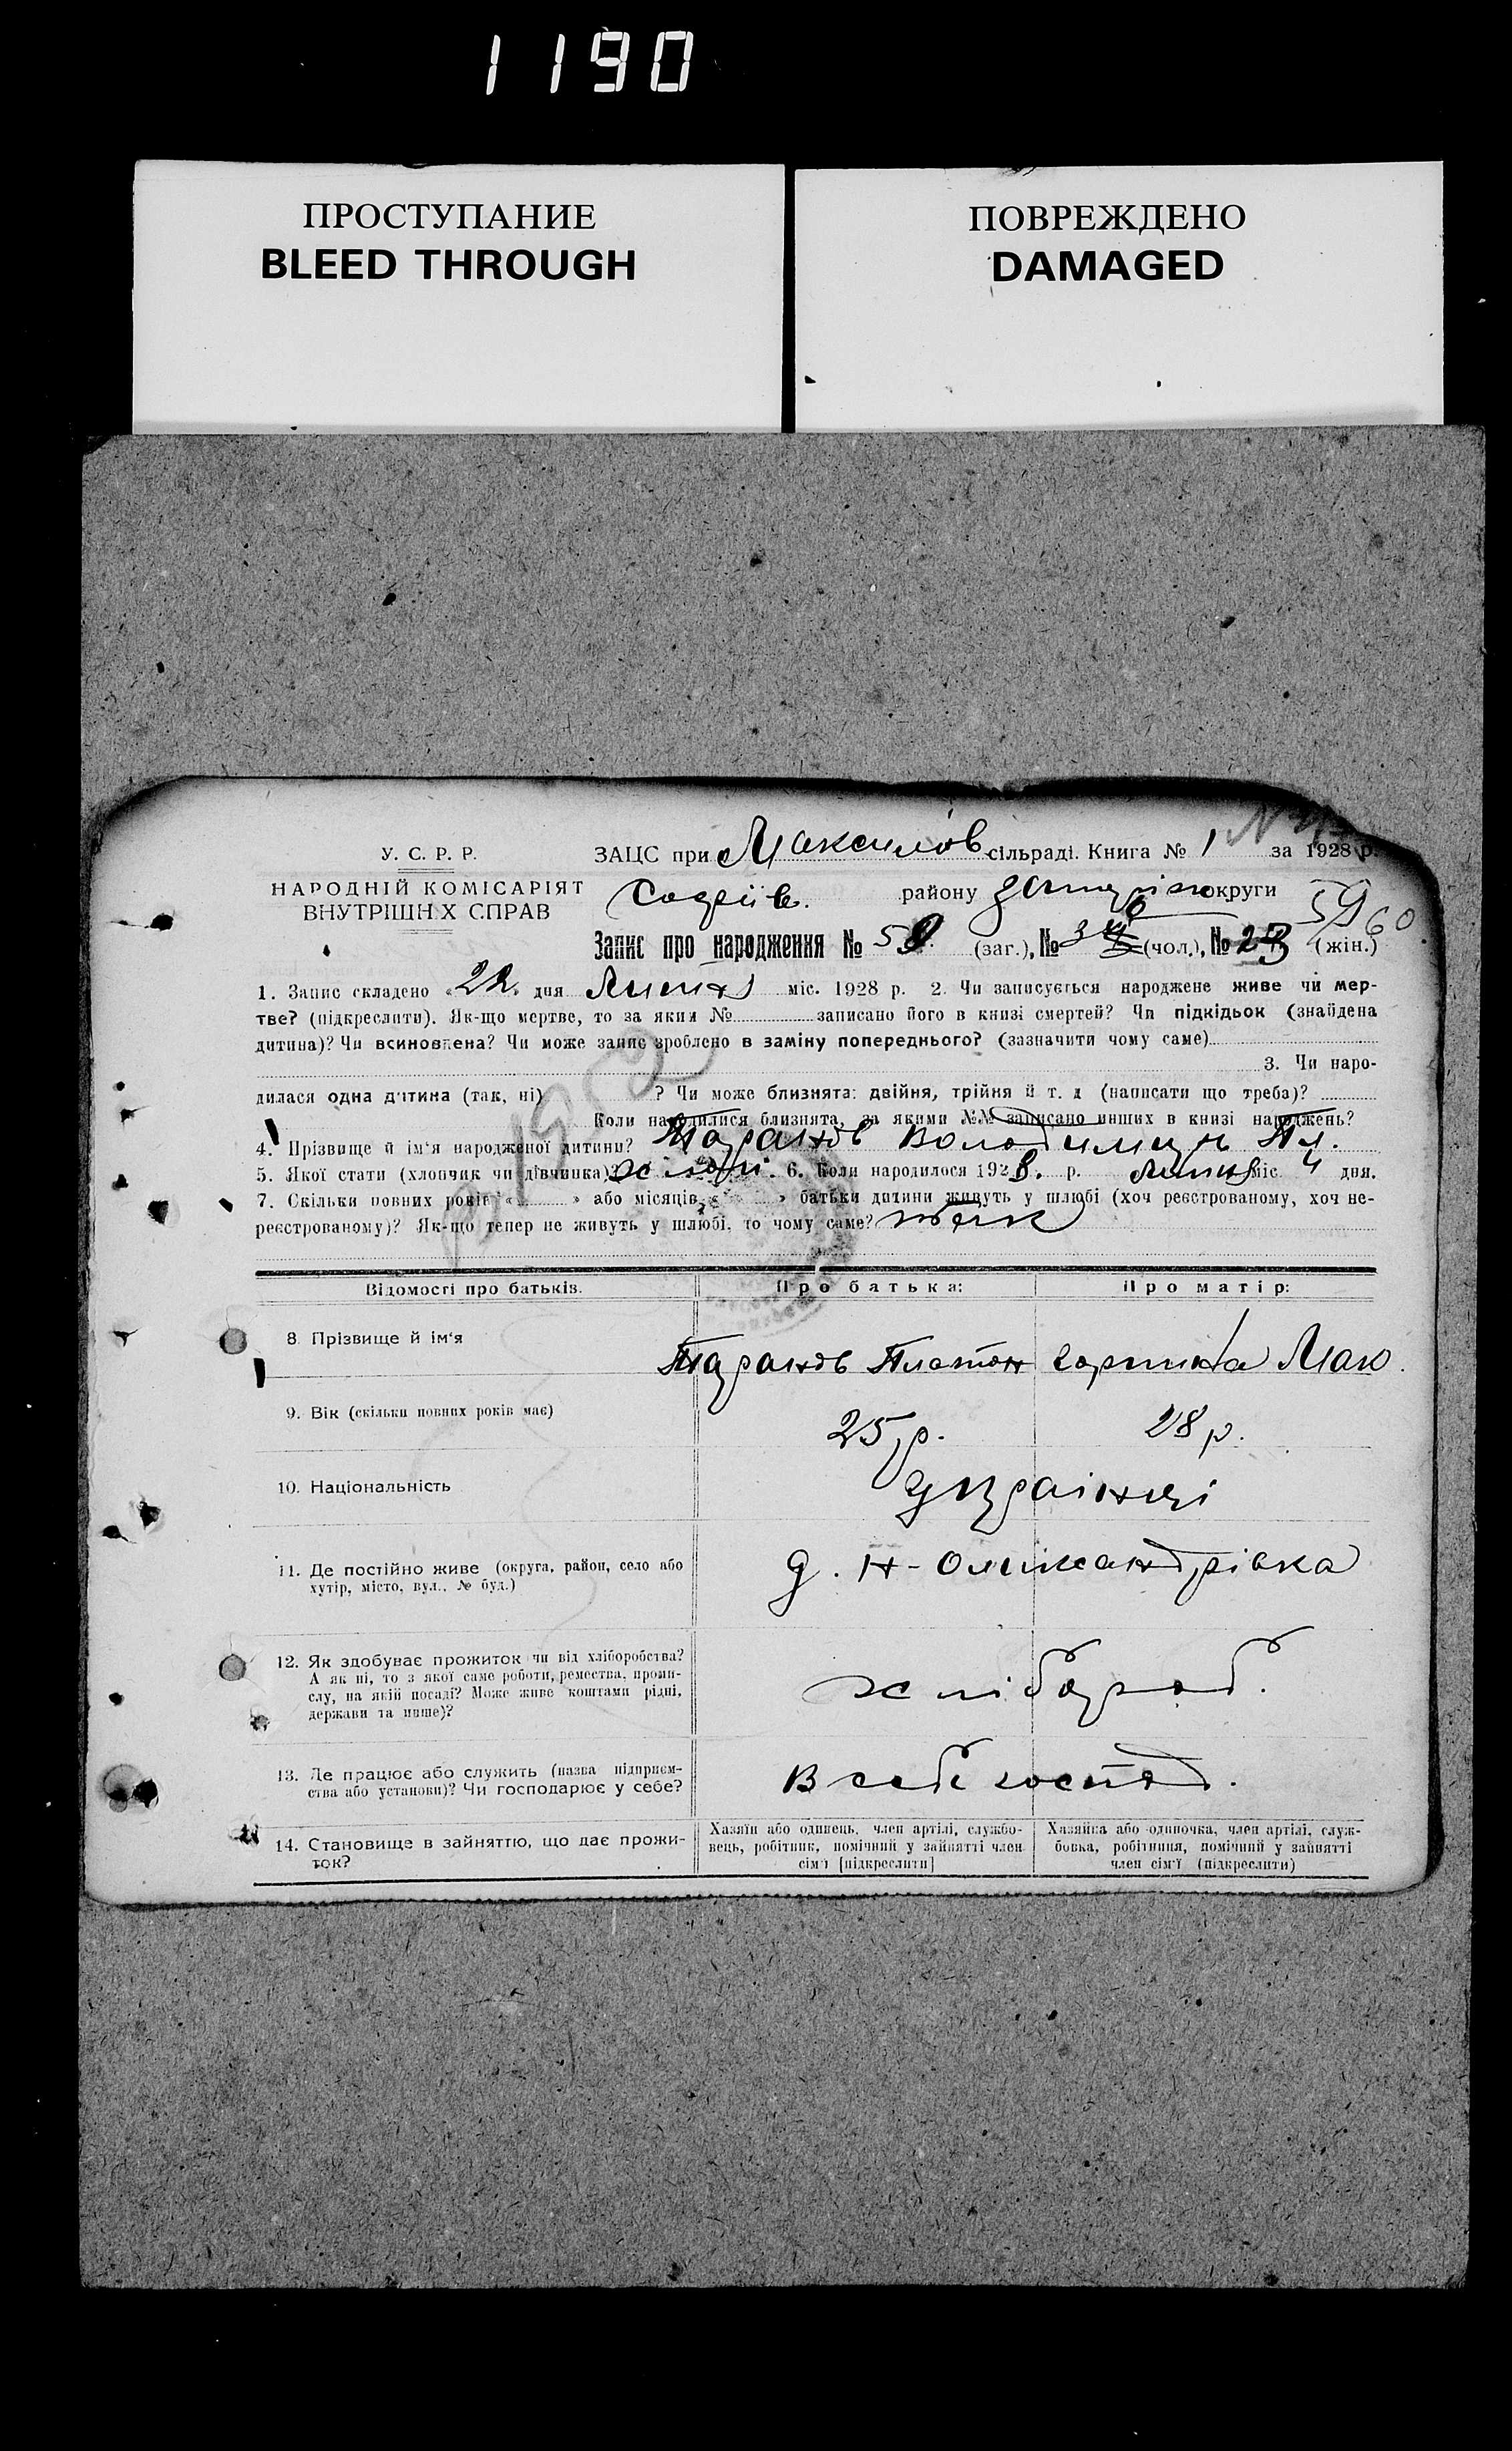 1190
ПРОСТУПАНИЕ
BLEED THROUGH
ПОВРЕЖДЕНО
DAMAGED
У. С. Р. Р.
НАРОДНІЙ КОМІСАРІЯТ
ВНУТРІШНІХ СПРАВ
ЗАЦС при Максимов сільраді. Книга № 1 за 1928 р.
району округи
59 60
Запис про народження № 59 (заг.), № 3 (чол.), № 23 (жін.)
1. Запис складено «22» дня Липня міс. 1928 р. 2. Чи записується народжене живе чи мер-
тве? (підкреслити). Як-що мертве, то за яким № записано його в книзі смертей? Чи підкідьок (знайдена
дитина)? Чи всиновлена? Чи може запис зроблено в заміну попереднього? (зазначити чому саме)
3. Чи наро-
дилася одна дитина (так, ні) ? Чи може близнята: двійня, трійня й т. д (написати що треба)?
Коли народилися близнята, за якими №№ записано инших в книзі народжень?
4. Прізвище й ім'я народженої дитини? Таранов Володимир Пл.
5. Якої стати (хлопчик чи дівчинка)? хлопч. 6. Коли народилося 1928. р. липня міс. 4 дня.
7. Скільки повних років « » або місяців « » батьки дитини живуть у шлюбі (хоч реєстрованому, хоч не-
реєстрованому)? Як-що тепер не живуть у шлюбі, то чому саме?
Відомості про батьків. Про батька: Про матір:
8. Прізвище й ім'я Таранов Платон Горпина Мак.
9. Вік (скільки повних років має) 25 р. 28 р.
10. Національність Українці
11. Де постійно живе (округа, район, село або
хутір, місто, вул., № буд.)
д. Н-Олександрівка
12. Як здобуває прожиток чи від хліборобства?
А як ні, то з якої саме роботи, ремества, проми-
слу, на якій посаді? Може живе коштами рідні,
держави та инше)?
хлібороб.
13. Де працює або служить (назва підприєм-
ства або установи)? Чи господарює у себе?
В себе господ.
14. Становище в зайняттю, що дає прожи-
ток?
Хазяїн або одинець, член артілі, службо-
вець, робітник, помічний у зайнятті член
сім'ї [підкреслити]
Хазяйка або одиночка, член артілі, служ-
бовка, робітниця, помічний у зайнятті
член сім'ї (підкреслити)